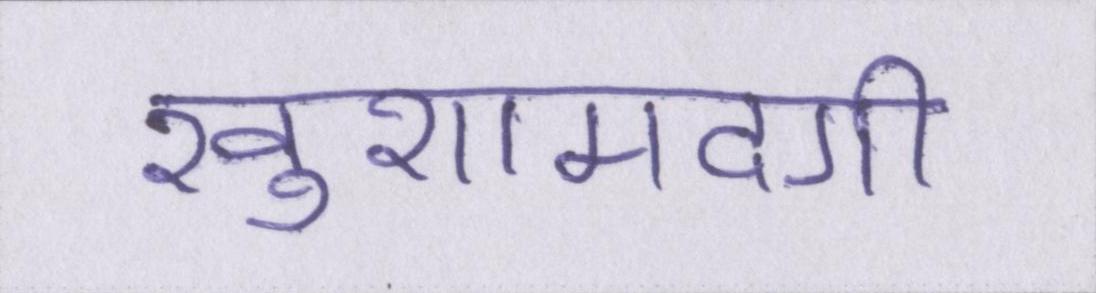 खुशामदगी